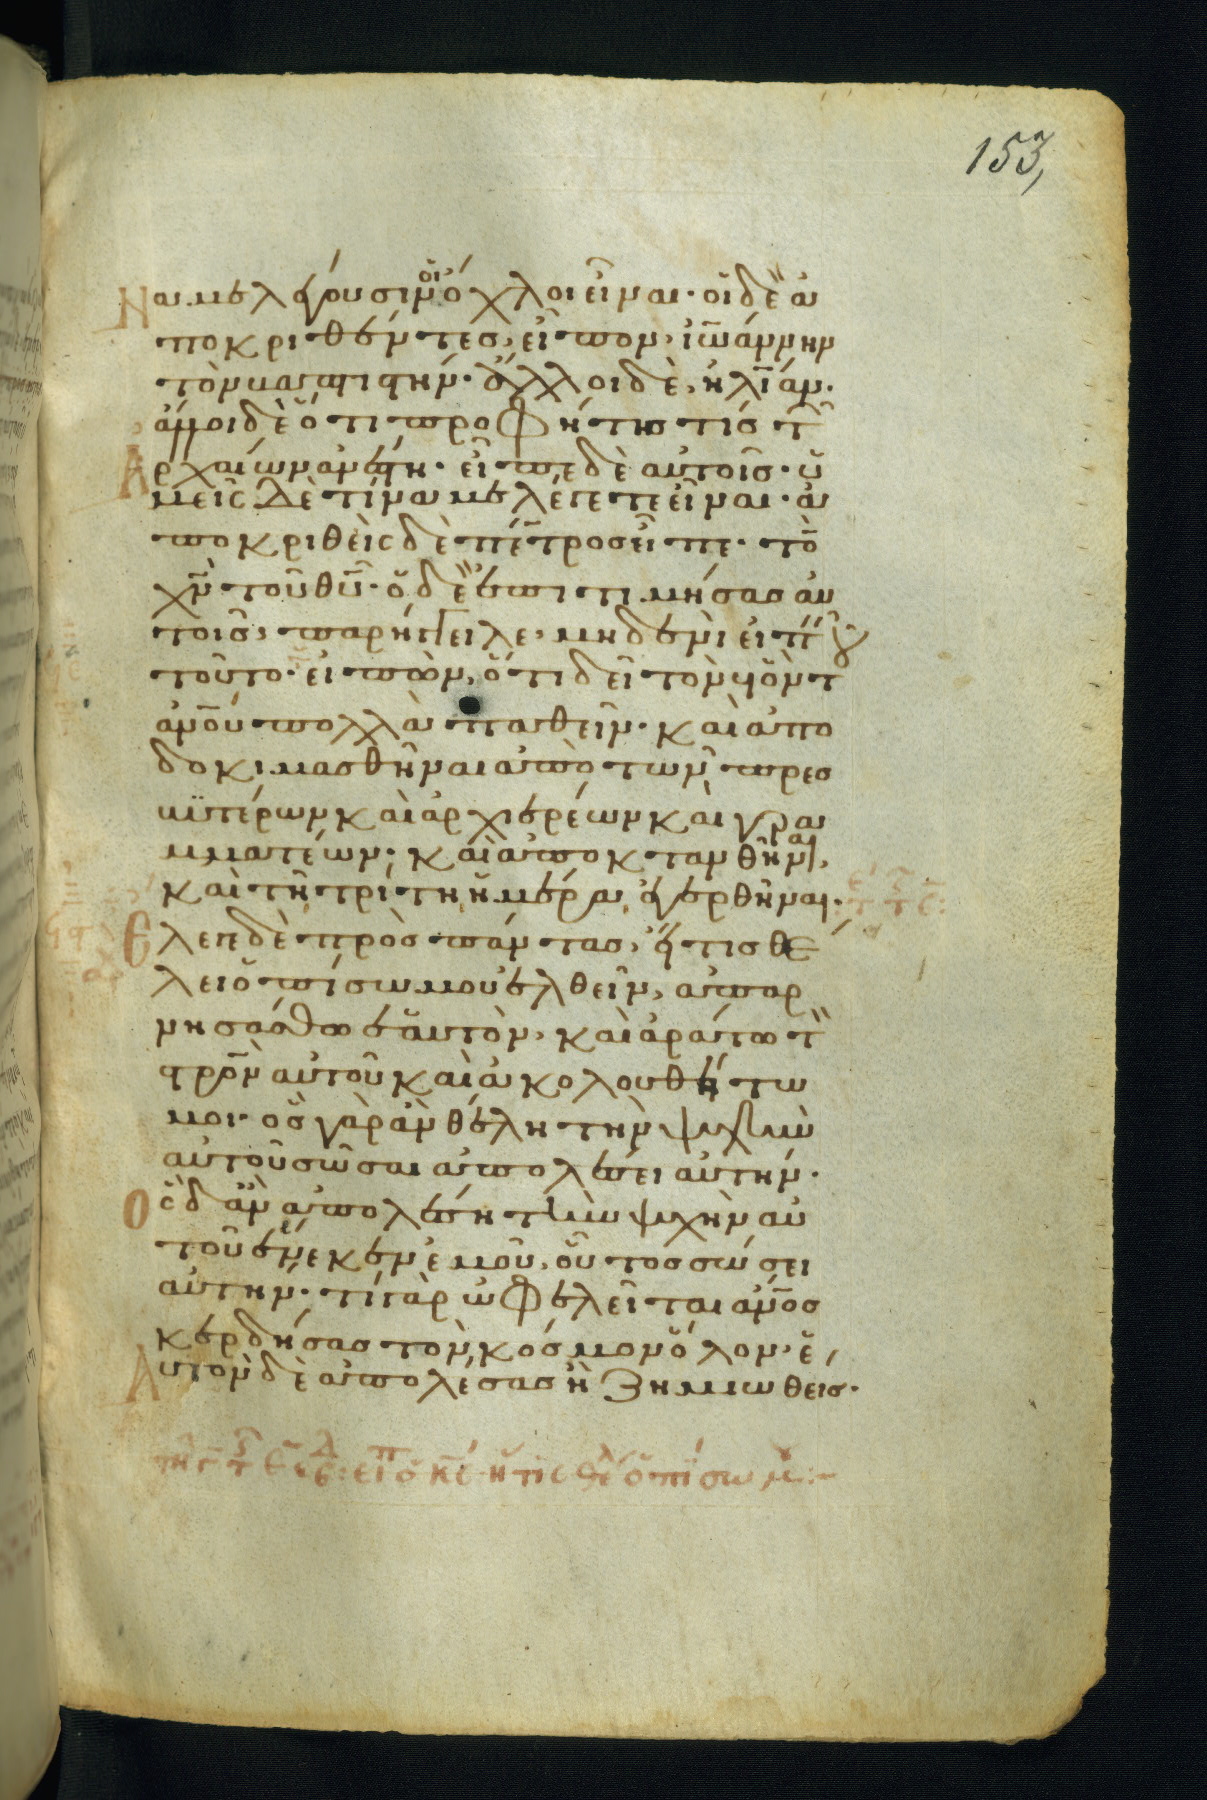 153,
Να με λέγουσιν οἱ ὄχλοι εἶναι· οἱ δὲ ἀ
ποκριθέντες, εἶπον, ἰω̅άννην
τὸν βαπτιστήν· ἄλλοι δὲ, ἠλίαν·
ἄλλοι δὲ ὅτι προφήτης τίς τ̅
Αρχαίων ἀνέστη· εἶπε δὲ αὐτοῖς· ὑ
μεῖς δὲ τίνα με λέγετε εἶναι· ἀ
ποκριθεὶς δὲ πέτρος εἶπε· τὸ̅
χ̅ν̅ τοῦ θ̅υ̅· ὁ δὲ ἐπιτιμήσας αὐ
τοῖς, παρήγγειλε, μηδενὶ εἰπεῖν
τοῦτο· εἰπὼν, ὅτι δεῖ τὸν υἱὸν τ
ἀν̅ο̅υ πολλὰ παθεῖν· καὶ ἀπο
δοκιμασθῆναι ἀπὸ τῶν πρεσ
βϋτέρων καὶ ἀρχιερέων καὶ γρα
μματέων· καὶ ἀποκτανθῆναι,
καὶ τῆ τρίτη ἡμέρα, ἐγερθῆναι·
Ελεγε δὲ πρὸς πάντας, εἴ τις θέ
λει ὀπίσω μου ἐλθεῖν, ἀπαρ
νησάσθω ἑαυτὸν, καὶ ἀράτω τ̅
στρ̅ο̅ν αὐτοῦ καὶ ἀκολουθείτω
μοι· ὃς γὰρ ἂν θέλη τὴν ψυχὴν
αὐτοῦ σῶσαι ἀπολέσει αὐτήν·
Ὃς δ ἂν ἀπολέση τὴν ψυχὴν αὐ
τοῦ ἕνεκεν ἐμοῦ, οὗτος σώσει
αὐτήν· τί γὰρ ὠφελεῖται ἄν̅ο̅ς
κερδήσας τὸν κόσμον ὅλον, ἑ
Αυτὸν δὲ ἀπολέσας ἢ ζημιωθεις·
εἶπ ὁ κ̅ς̅ εἴ τις θέλ ὀπίσω μου